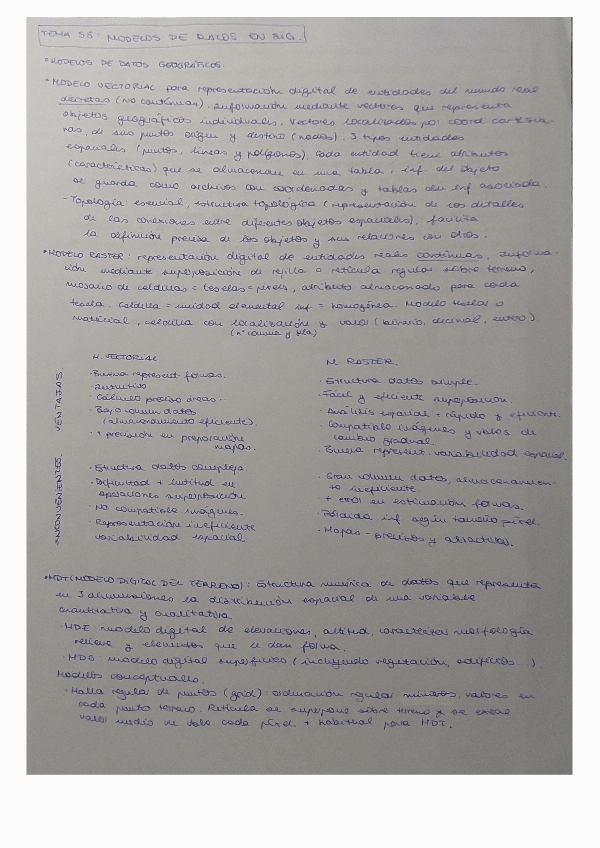 TEMA 58: MODELOS DE DATOS EN SIG.
• MODELOS DE DATOS GEOGRÁFICOS.
• MODELO VECTORIAL para representación digital de entidades del mundo real
discretas (no continuas). Información mediante vectores que representa
objetos geográficos individuales. Vectores localizados por coord cartesia-
nas, de sus puntos origen y destino (nodos). 3 tipos entidades
espaciales (puntos, líneas y polígonos). Cada entidad tiene atributos
(características) que se almacenan en una tabla. Inf del objeto
se guarda como archivos con coordenadas y tablas con inf asociada.
- Topología esencial, estructura topológica (representación de los detalles
de las conexiones entre diferentes objetos espaciales), facilita
la definición precisa de los objetos y sus relaciones con otros.
• MODELO RASTER: representación digital de entidades reales continuas. Informa-
ción mediante superposición de rejilla o retícula regular sobre terreno,
mosaico de celdillas = teselas = píxels, atributo almacenado para cada
tesela. Celdilla = unidad elemental inf = homogénea. Modelo teselar o
matricial, celdilla con localización y valor (binario, decimal, entero).
(nº columna y fila)
M. VECTORIAL
M. RASTER.
VENTAJAS.
· Buena represent. formas.
· Intuitivo
· Cálculo preciso áreas.
· Bajo volumen datos
(almacenamiento eficiente).
· + precisión en preparación
mapas.
· Estructura datos simple.
· Fácil y eficiente superposición.
· Análisis espacial + rápido y eficiente.
· Compatible imágenes y valores de
cambio gradual.
· Buena represent. variabilidad espacial.
INCONVENIENTES.
· Estructura datos compleja
· Dificultad + lentitud en
operaciones superposición
· No compatible imágenes.
· Representación ineficiente
variabilidad espacial
· Gran volumen datos, almacenamien-
to ineficiente
· + error en estimación formas.
· Pérdida inf según tamaño píxel.
· Mapas - precisos y atractivos.
• MDT (MODELO DIGITAL DEL TERRENO): Estructura numérica de datos que representa
en 3 dimensiones la distribución espacial de una variable
cuantitativa y cualitativa
· MDE modelo digital de elevaciones, altitud, caracterizar morfología
relieve y elementos que le dan forma.
· MDS modelo digital superficies (incluyendo vegetación, edificios...).
Modelos conceptuales.
· Malla regular de puntos (grid): ordenación regular números, valores en
cada punto terreno. Retícula se superpone sobre terreno y se extrae
valor medio de cada píxel. + habitual para MDT.